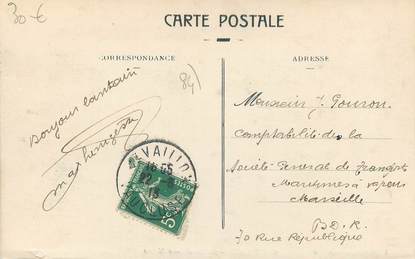 30 €
CARTE POSTALE
CORRESPONDANCE
ADRESSE
84)
Bonjour lointain
Monsieur J. Gouron
Comptabilité de la
Société Générale de Transports
Maritimes à vapeur
Marseille
B.D.R.
70 Rue République